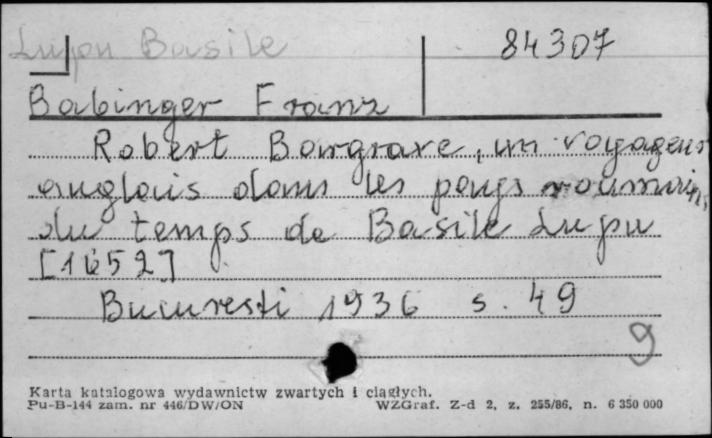 Lupu Basile
84307
Babinger Franz
Robert Bargrave, un voyageur
anglais dans les pays roumains,
du temps de Basile Lupu
[1652]
Bucuresti 1936 s. 49
9
Karta katalogowa wydawnictw zwartych i ciągłych.
Pu-B-144 zam. nr 446/DW/ON WZGraf. Z-d 2, z. 255/86, n. 6 350 000